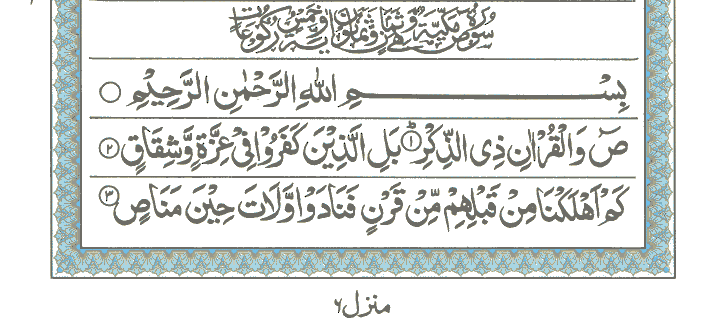 سورة ص مكية وهي ثمان وثمانون آية وخمس ركوعات
بِسْمِ اللهِ الرَّحْمٰنِ الرَّحِيْمِ ○
صٓ وَالْقُرْاٰنِ ذِی الذِّكْرِ ؕ۱ بَلِ الَّذِيْنَ كَفَرُوْا فِیْ عِزَّةٍ وَّشِقَاقٍ ۲
كَمْ اَهْلَكْنَا مِنْ قَبْلِهِمْ مِّنْ قَرْنٍ فَنَادَوْا وَّلَاتَ حِيْنَ مَنَاصٍ ۳
منزل ۶